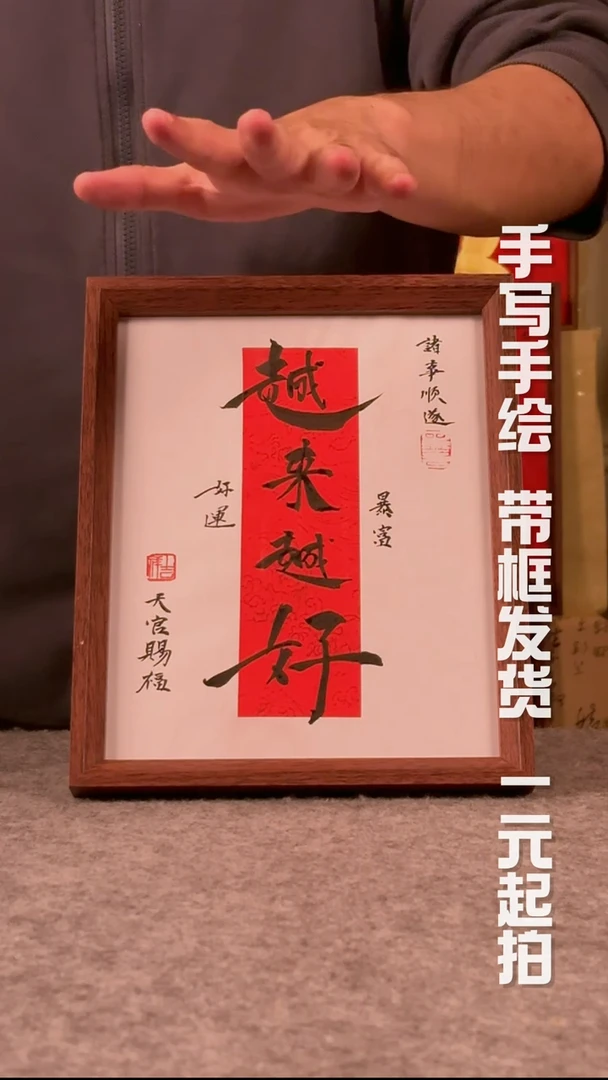 諸事顺遂
越来越好
暴富
好運
天官賜福
手写手绘 带框发货 一元起拍